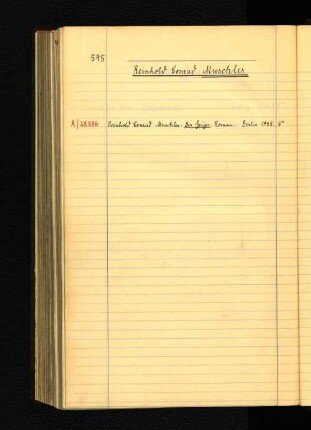 595
Reinhold Conrad Muschler
A/28886 Reinhold Conrad Muschler. Der Geiger. Roman. Berlin 1935. 8°